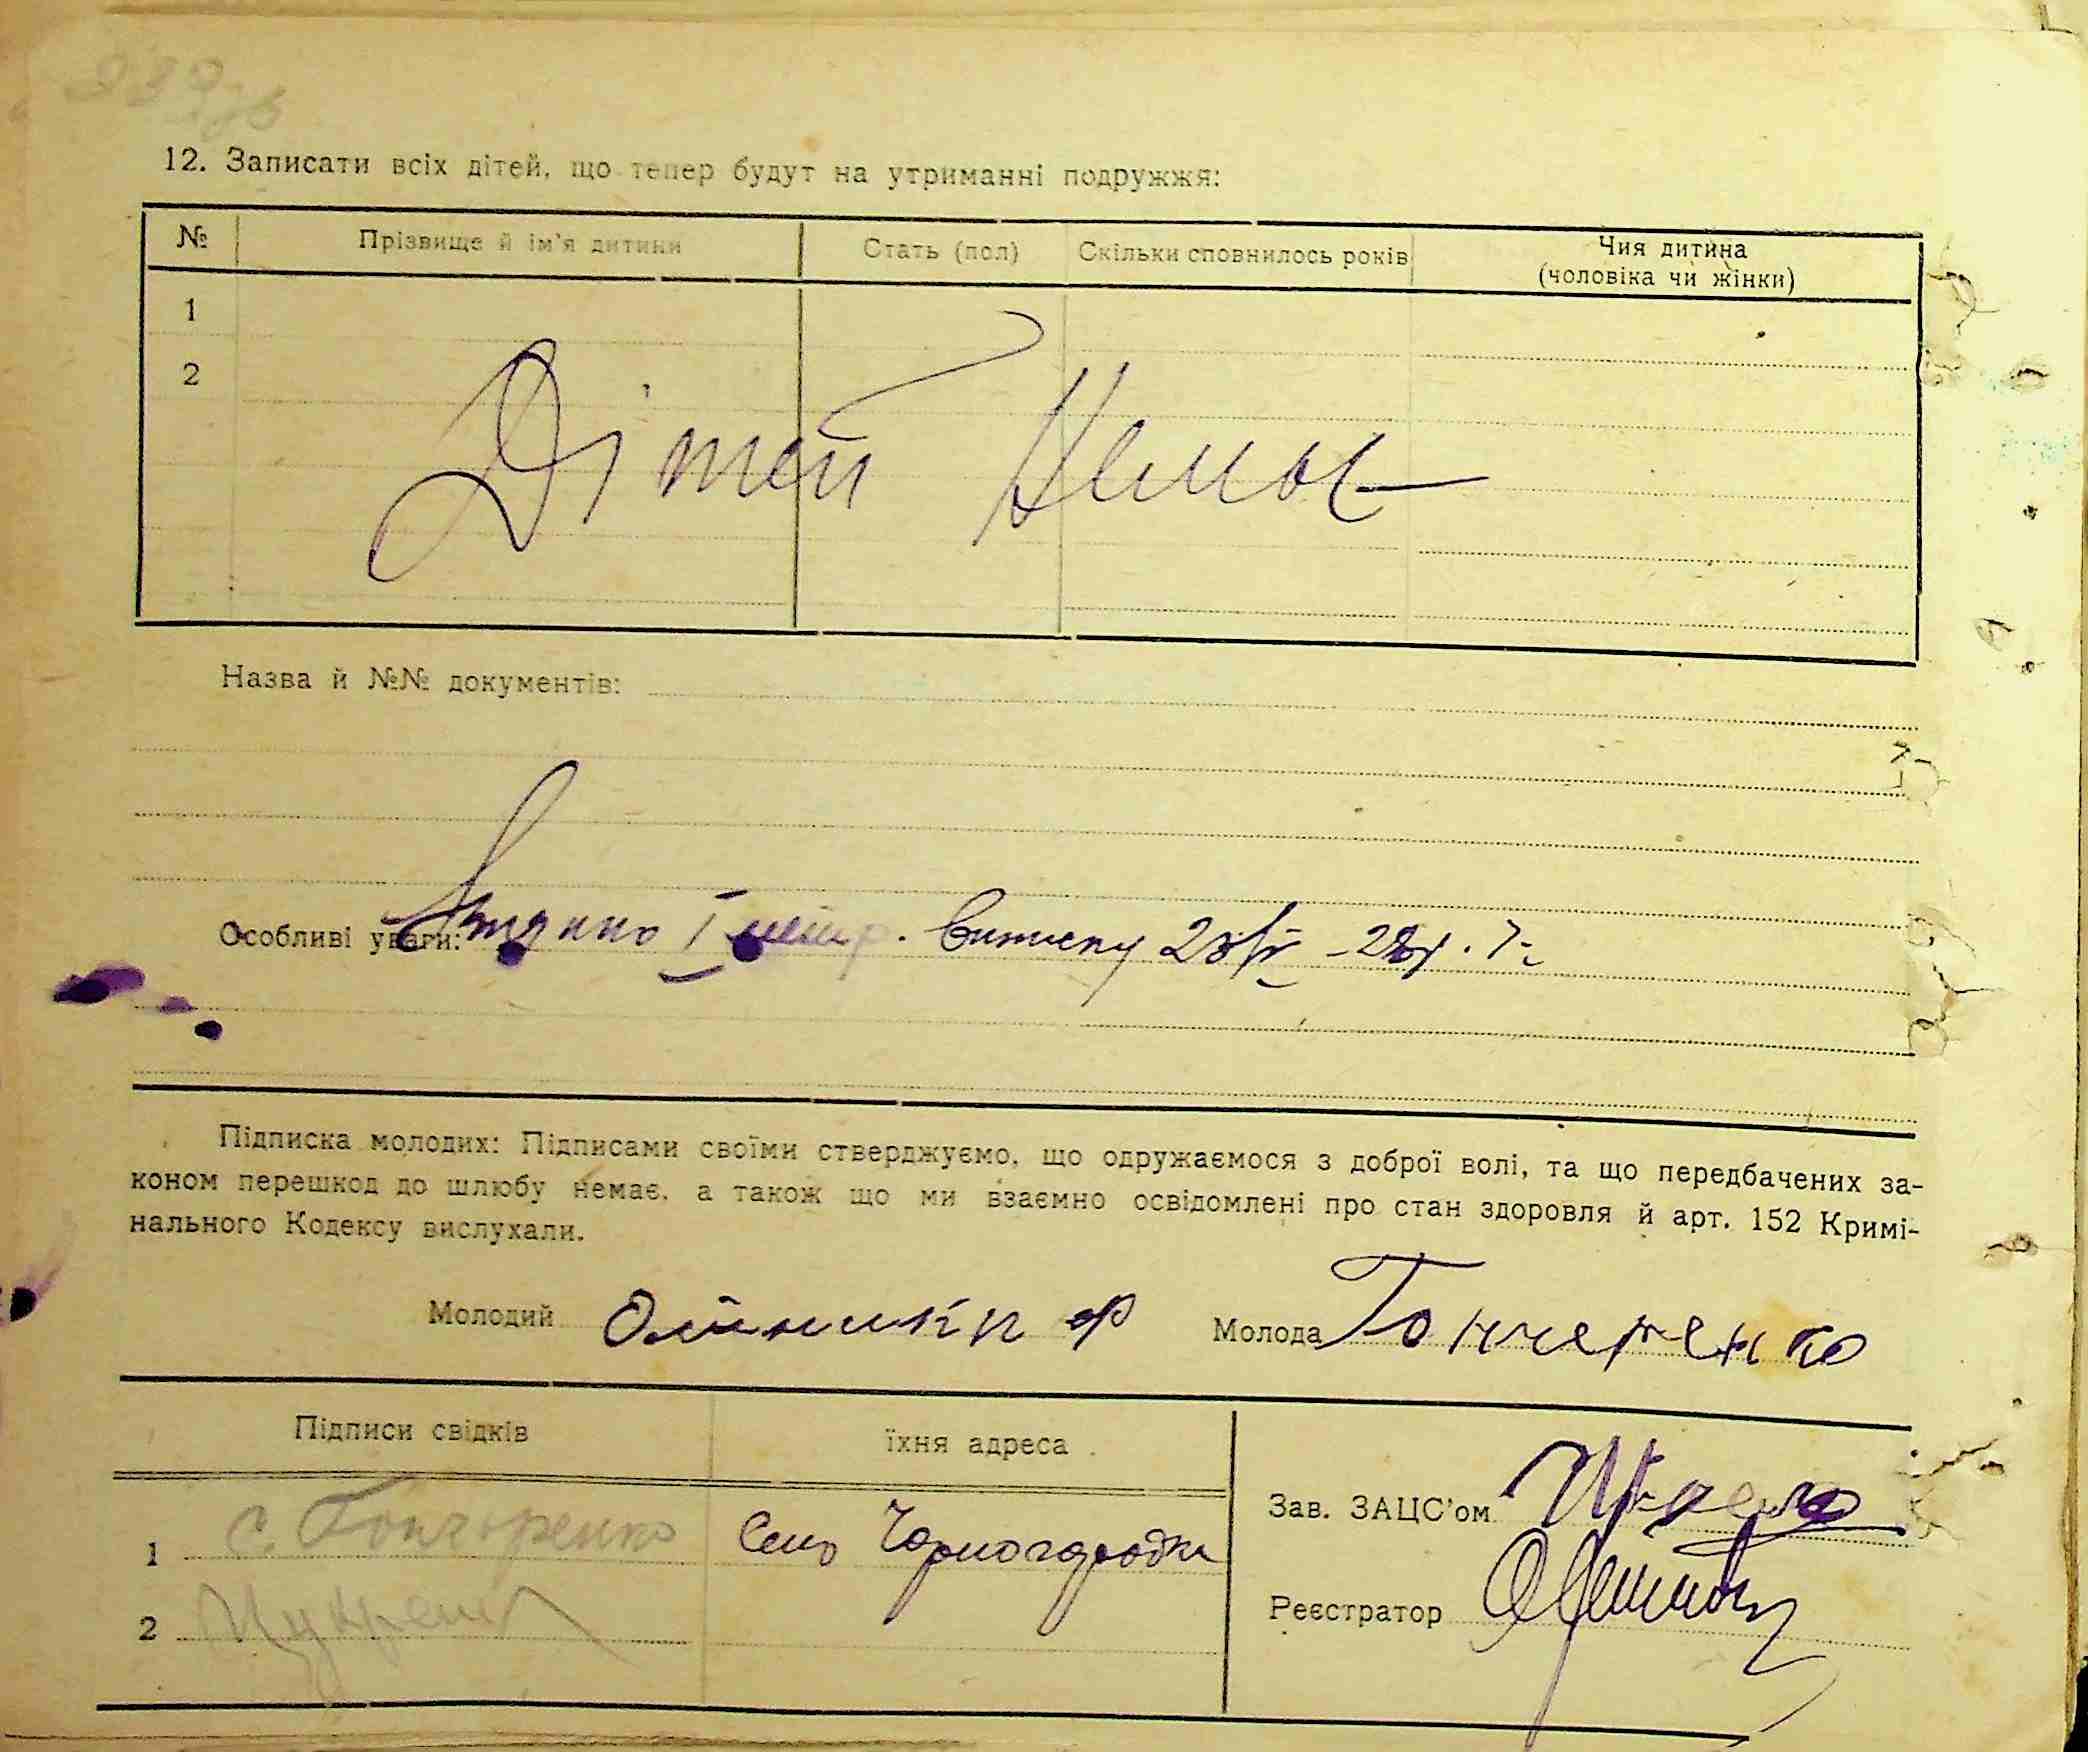 12. Записати всіх дітей, що тепер будут на утриманні подружжя:
№ Прізвище й ім'я дитини Стать (пол) Скільки сповнилось років Чия дитина (чоловіка чи жінки)
1
2
Дітей Немає
Назва й №№ документів:
Особливі уваги: виписку
Підписка молодих: Підписами своїми стверджуємо, що одружаємося з доброї волі, та що передбачених за-
коном перешкод до шлюбу немає, а також що ми взаємно освідомлені про стан здоровля й арт. 152 Кримі-
нального Кодексу вислухали.
Молодий Молода Гончеренко
Підписи свідків їхня адреса
Зав. ЗАЦС'ом
1 С. Гончоренко Село Чорногородка
Реєстратор
2